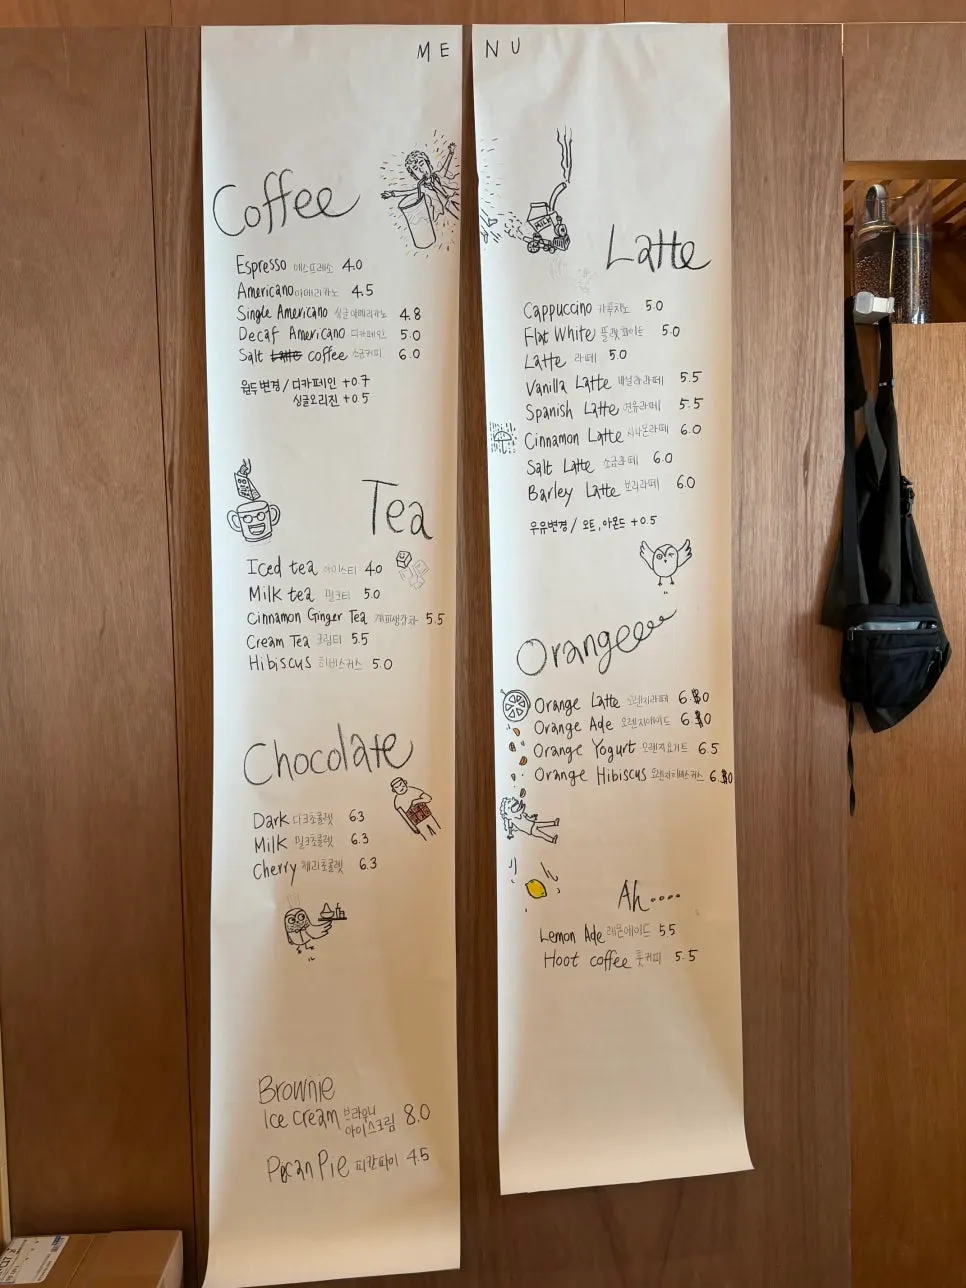 ME NU
Coffee
Espresso 에스프레소 4.0
Americano 아메리카노 4.5
Single Americano 싱글아메리카노 4.8
Decaf Americano 디카페인 5.0
Salt Latte coffee 소금커피 6.0
원두변경 / 디카페인 +0.7
싱글오리진 +0.5
Tea
Iced tea 아이스티 4.0
Milk tea 밀크티 5.0
Cinnamon Ginger Tea 계피생강차 5.5
Cream Tea 크림티 5.5
Hibiscus 히비스커스 5.0
Chocolate
Dark 다크초콜렛 6.3
Milk 밀크초콜렛 6.3
Cherry 체리초콜렛 6.3
Brownie
Ice cream 브라우니 아이스크림 8.0
Pecan Pie 피칸파이 4.5
MILK
Latte
Cappuccino 카푸치노 5.0
Flat White 플랫화이트 5.0
Latte 라떼 5.0
Vanilla Latte 바닐라라떼 5.5
Spanish Latte 연유라떼 5.5
Cinnamon Latte 시나몬라떼 6.0
Salt Latte 소금라떼 6.0
Barley Latte 보리라떼 6.0
우유변경 / 오트, 아몬드 +0.5
Orangeee
Orange Latte 오렌지라떼 6.0
Orange Ade 오렌지에이드 6.0
Orange Yogurt 오렌지요거트 6.5
Orange Hibiscus 오렌지히비스커스 6.0
Ah....
Lemon Ade 레몬에이드 5.5
Hoot coffee 훗커피 5.5